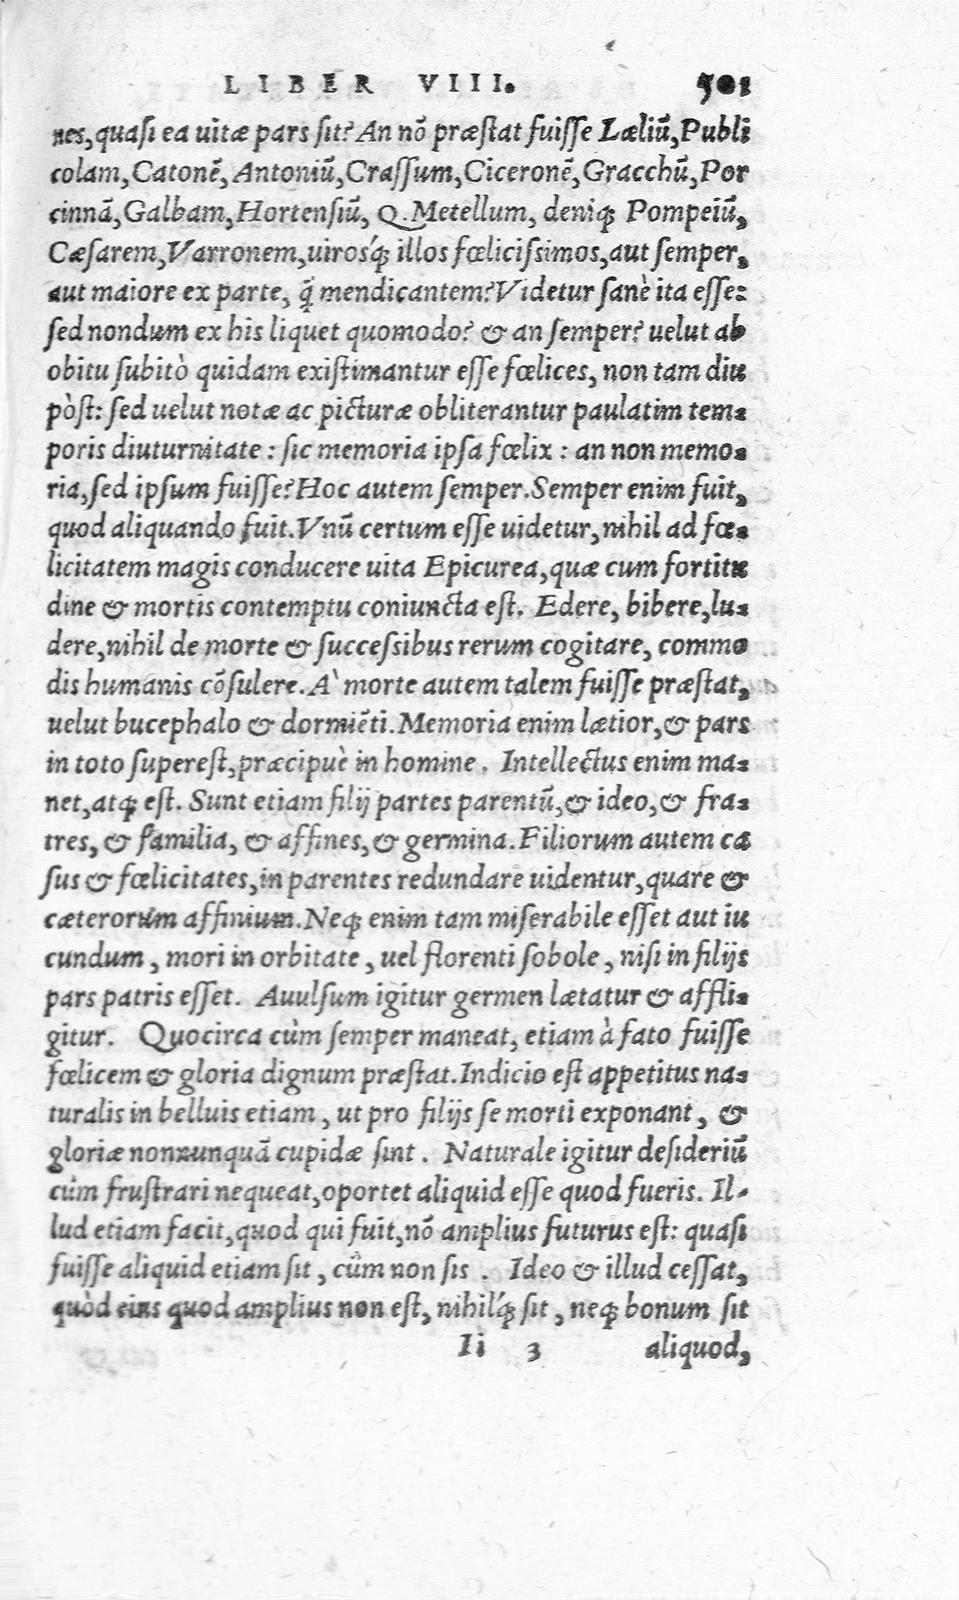 LIBER VIII. 501
nes, quasi ea uitæ pars sit? An nō præstat fuisse Læliū, Publi
colam, Catonē, Antoniū, Crassum, Ciceronē, Gracchū, Por
cinnā, Galbam, Hortensiū, Q. Metellum, deniq; Pompeiū,
Cæsarem, Varronem, uirosq́; illos fœlicissimos, aut semper,
aut maiore ex parte, q̄ mendicantem? Videtur sanè ita esse:
sed nondum ex his liquet quomodo? & an semper? uelut ab
obitu subitò quidam existimantur esse fœlices, non tam diu
pòst: sed uelut notæ ac picturæ obliterantur paulatim tem-
poris diuturnitate: sic memoria ipsa fœlix: an non memo-
ria, sed ipsum fuisse? Hoc autem semper. Semper enim fuit,
quod aliquando fuit. Vnū certum esse uidetur, nihil ad fœ-
licitatem magis conducere uita Epicurea, quæ cum fortitu
dine & mortis contemptu coniuncta est. Edere, bibere, lu-
dere, nihil de morte & successibus rerum cogitare, commo
dis humanis cōsulere. A` morte autem talem fuisse præstat,
uelut bucephalo & dormiēti. Memoria enim lætior, & pars
in toto superest, præcipuè in homine. Intellectus enim ma-
net, atq; est. Sunt etiam filij partes parentū, & ideo, & fra-
tres, & familia, & affines, & germina. Filiorum autem ca
sus & fœlicitates, in parentes redundare uidentur, quare &
cæterorum affinium. Neq; enim tam miserabile esset aut iu
cundum, mori in orbitate, uel florenti sobole, nisi in filijs
pars patris esset. Auulsum igitur germen lætatur & affli-
gitur. Quocirca cùm semper maneat, etiam à fato fuisse
fœlicem & gloria dignum præstat. Indicio est appetitus na-
turalis in belluis etiam, ut pro filijs se morti exponant, &
gloriæ nonnunquā cupidæ sint. Naturale igitur desideriū
cùm frustrari nequeat, oportet aliquid esse quod fueris. Il-
lud etiam facit, quod qui fuit, nō amplius futurus est: quasi
fuisse aliquid etiam sit, cûm non sis. Ideo & illud cessat,
quòd eius quod amplius non est, nihilq́; sit, neq; bonum sit
Ii 3 aliquod,